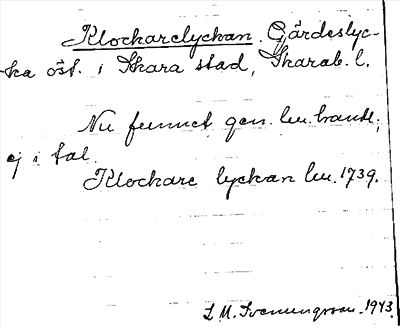 Klockarelyckan. Gärdeslyc-
ka öst. i Skara stad, Skarab. l.
Nu funnet gen. lm. handl.;
ej i tal.
Klockare lyckan lm. 1739.
L. M. Svenungsson. 1943.